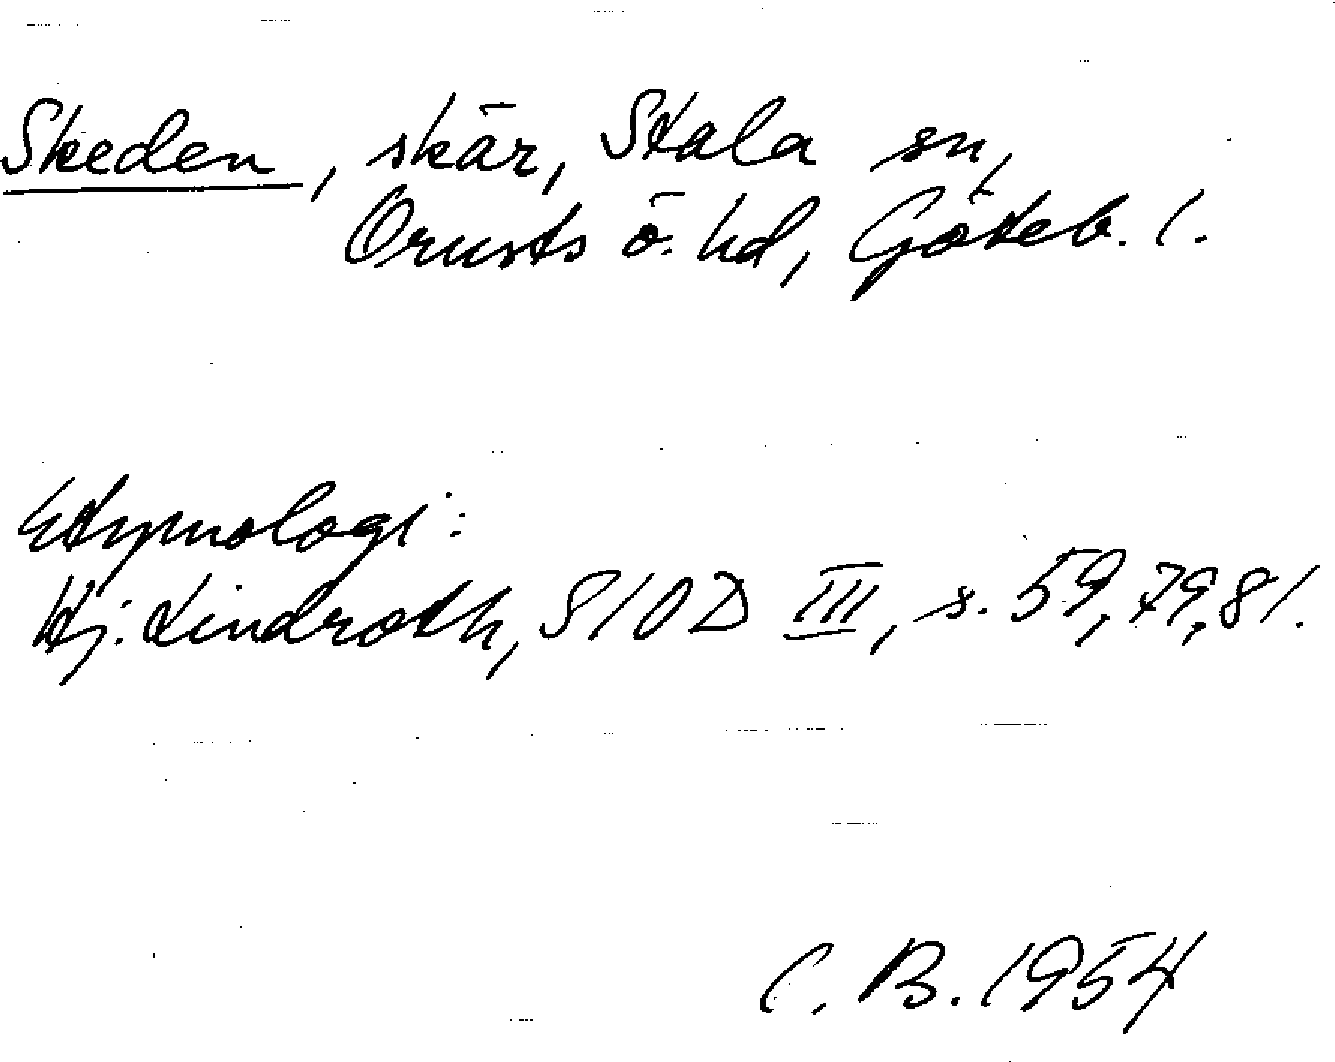 Skeden, skär, Stala sn,
Orusts ö. hd, Göteb. l.
Etymologi:
Hj. Lindroth, SIOD III, s. 59, 79, 81.
C. B. 1954